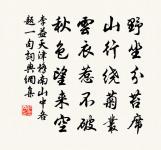 野坐分苔席
山行绕菊叢
雲衣惹不破
秋色望来空
李益天津橋南山中各
題一句詞典網集